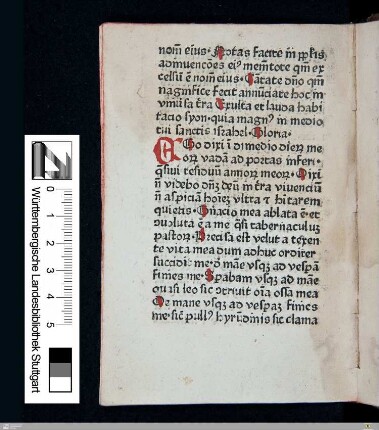 nom̄ eius· Notas facite in pp̄lis
adinuenc̄oes ei⁹ mem̄tote qm̄ ex
celsū ē nom̄ eius· Cātate dn̄o qm̄
magnifice fecit annūciate hoc in
vniūsa t̄ra Exulta et lauda habi
tacio syon·quia magn⁹ in medio
tui sanctis israhel· Gloria·
EGo dixi ī dimedio dieꝝ me
oꝝ vadā ad portas inferi·
q̄siui residuū annoꝝ meoꝝ· Dixi
n̄ videbo dn̄ꝫ deū in t̄ra viuenciū
n̄ aspiciā hoīeꝫ vltra ⁊ hītarem
quietis· Gn̄acio mea ablata ē·et
ꝯuoluta ē a me q̄si tabernaculuꝫ
pastoꝝ· Precisa est velut a texen
te vita mea dum adhuc ordirer
succidit me·d̄ māe vsqꝫ ad vespā
fīnies me· Sp̄abam vsqꝫ ad māe
quasi leo sic ꝯtriuit oīa ossa mea
De mane vsqꝫ ad vesp̄aꝫ finies
me·sic pull⁹ hyrūdinis sic clama
0
1
2
3
4
5
Württembergische Landesbibliothek Stuttgart